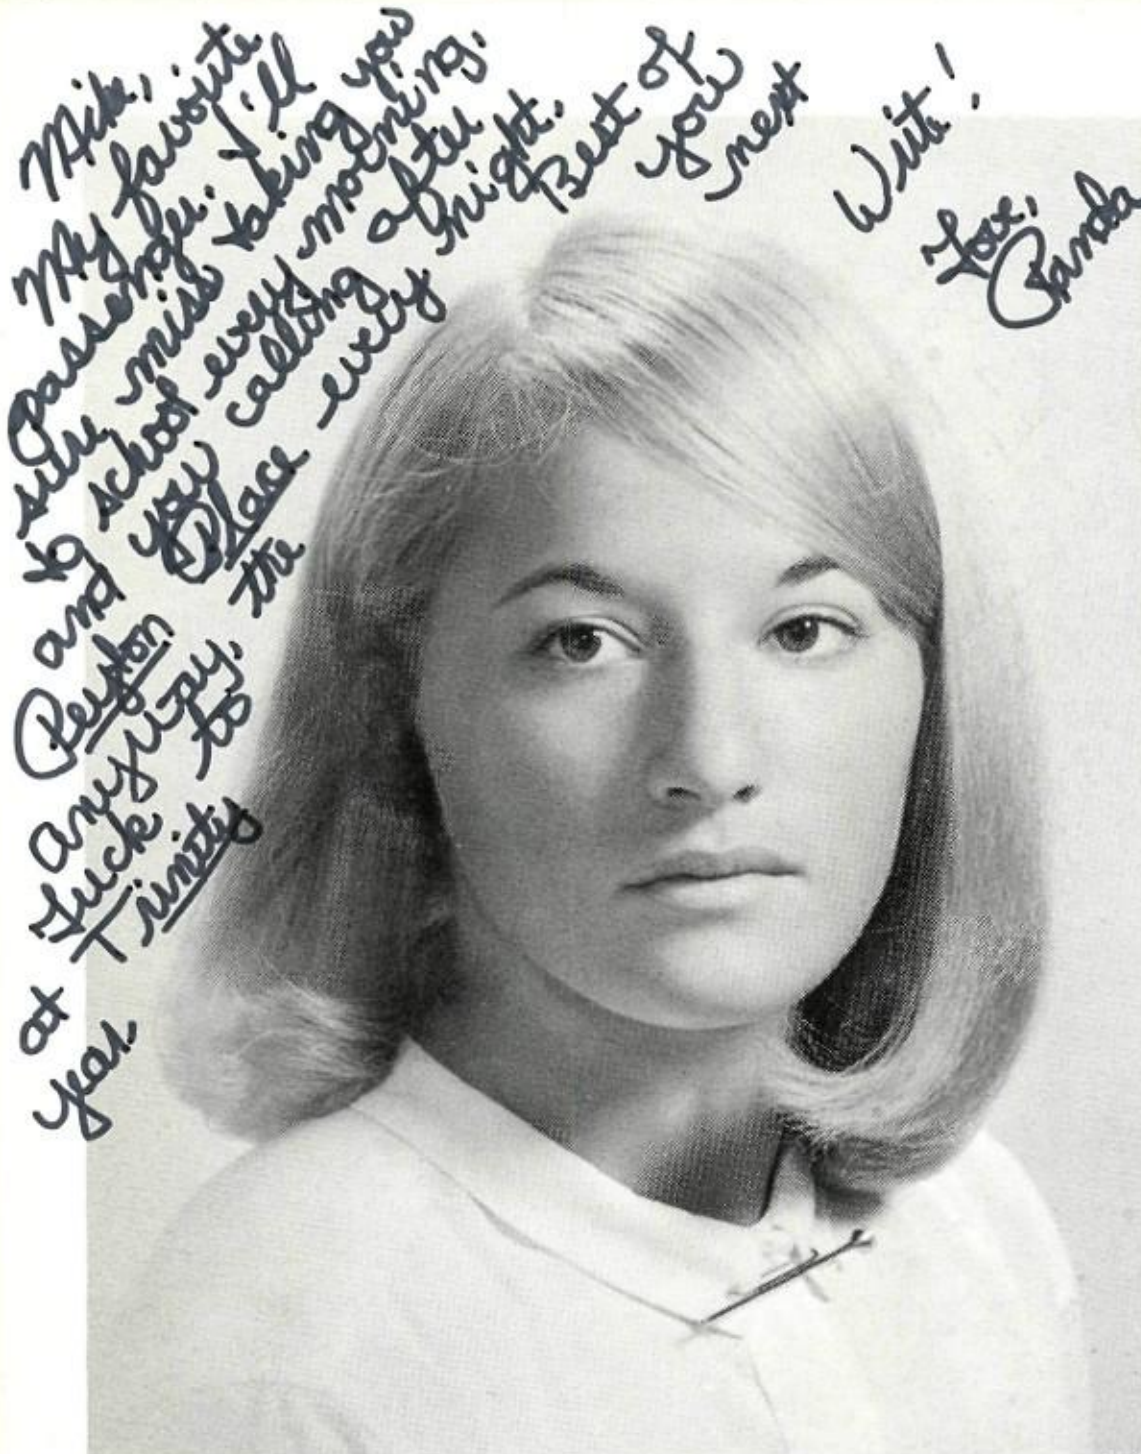 Mike,
My favorite
passenger. I'll
sure miss taking you
to school every morning.
and you calling after
Peyton Place every night.
anyway, the Best of
Luck to you
at Trinity next
year.
Write!
Love,
Panda